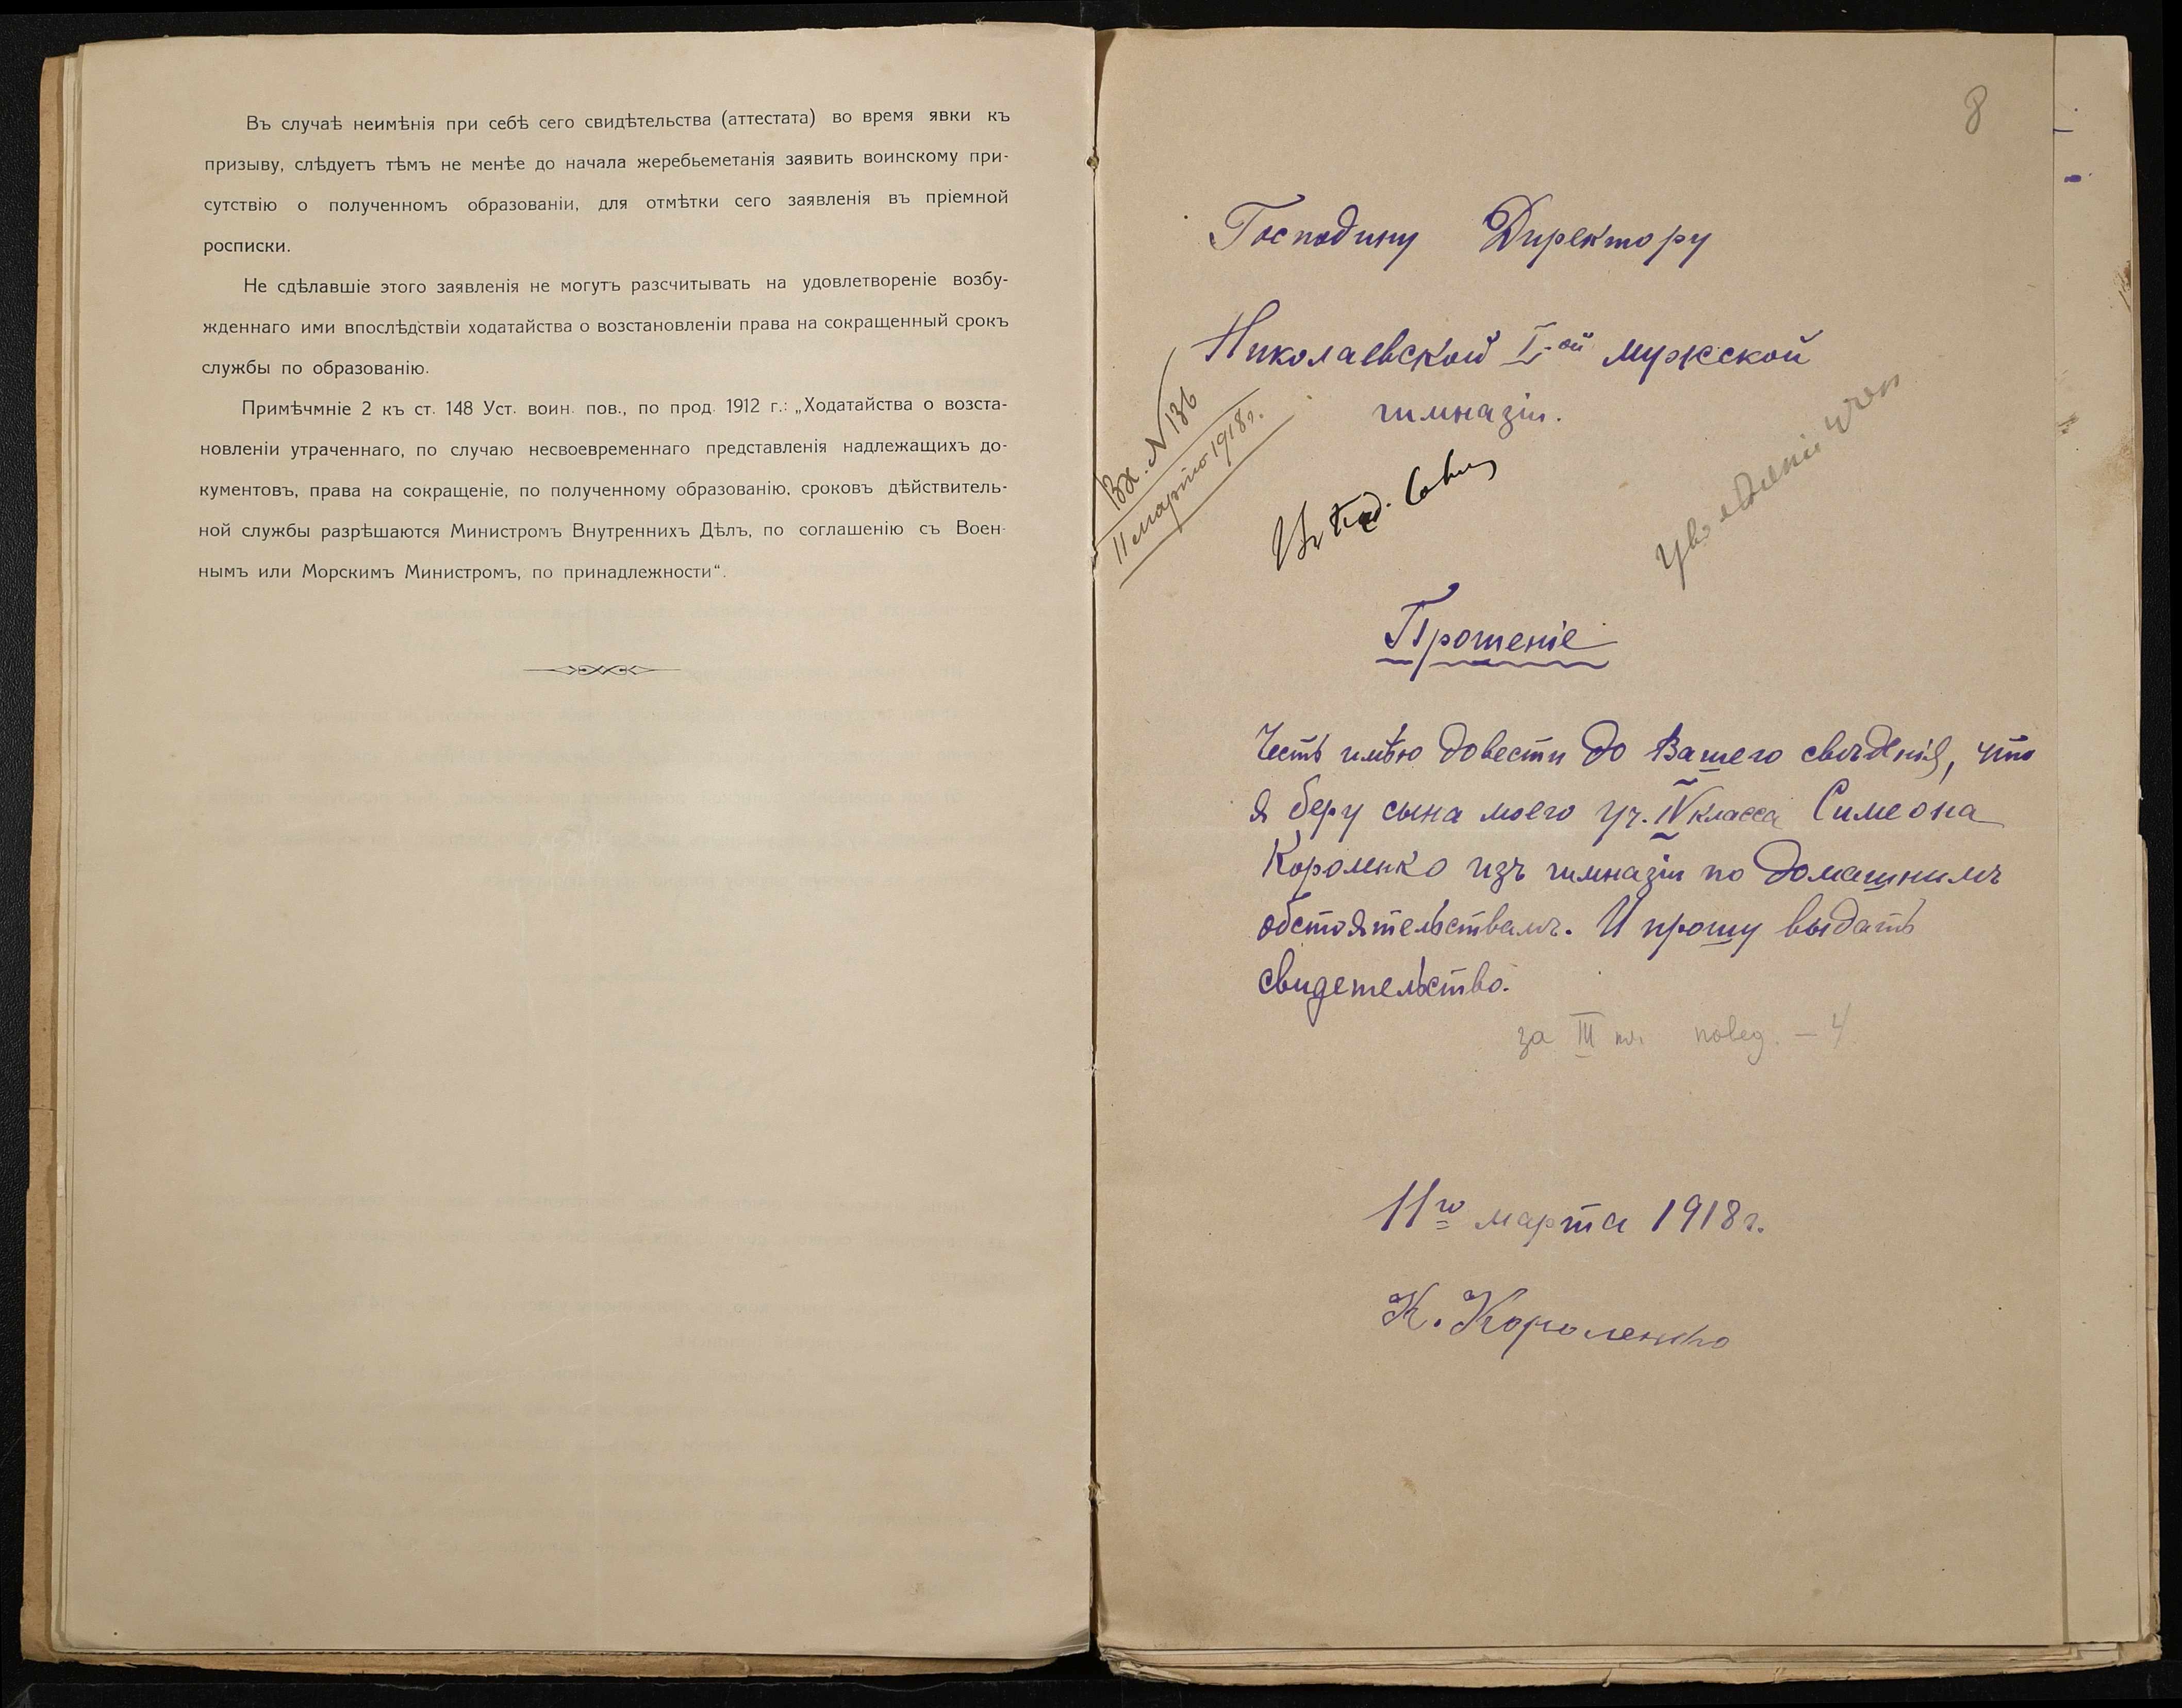 Въ случаѣ неимѣнія при себѣ сего свидѣтельства (аттестата) во время явки къ
призыву, слѣдуетъ тѣмъ не менѣе до начала жеребьеметанія заявить воинскому при-
сутствію о полученномъ образованіи, для отмѣтки сего заявленія въ пріемной
росписки.
Не сдѣлавшіе этого заявленія не могутъ разсчитывать на удовлетвореніе возбу-
жденнаго ими впослѣдствіи ходатайства о возстановленіи права на сокращенный срокъ
службы по образованію.
Примѣчмніе 2 къ ст. 148 Уст. воин. пов., по прод. 1912 г.: „Ходатайства о возста-
новленіи утраченнаго, по случаю несвоевременнаго представленія надлежащихъ до-
кументовъ, права на сокращеніе, по полученному образованію, сроковъ дѣйствитель-
ной службы разрѣшаются Министромъ Внутреннихъ Дѣлъ, по соглашенію съ Воен-
нымъ или Морскимъ Министромъ, по принадлежности“.
8
Господину Директору
Николаевской I-ой мужской
гимназіи.
Вх. N 136
11 марта 1918 г.
Въ Пед. Совѣт
Прошеніе
Честь имѣю довести до Вашего свѣдѣнія, что
я беру сына моего уч. IV класса Симеона
Короленко изъ гимназіи по домашнимъ
обстоятельствамъ. И прошу выдать
свидетельство.
за III кл. повед. – 4
11го марта 1918 г.
К. Короленко